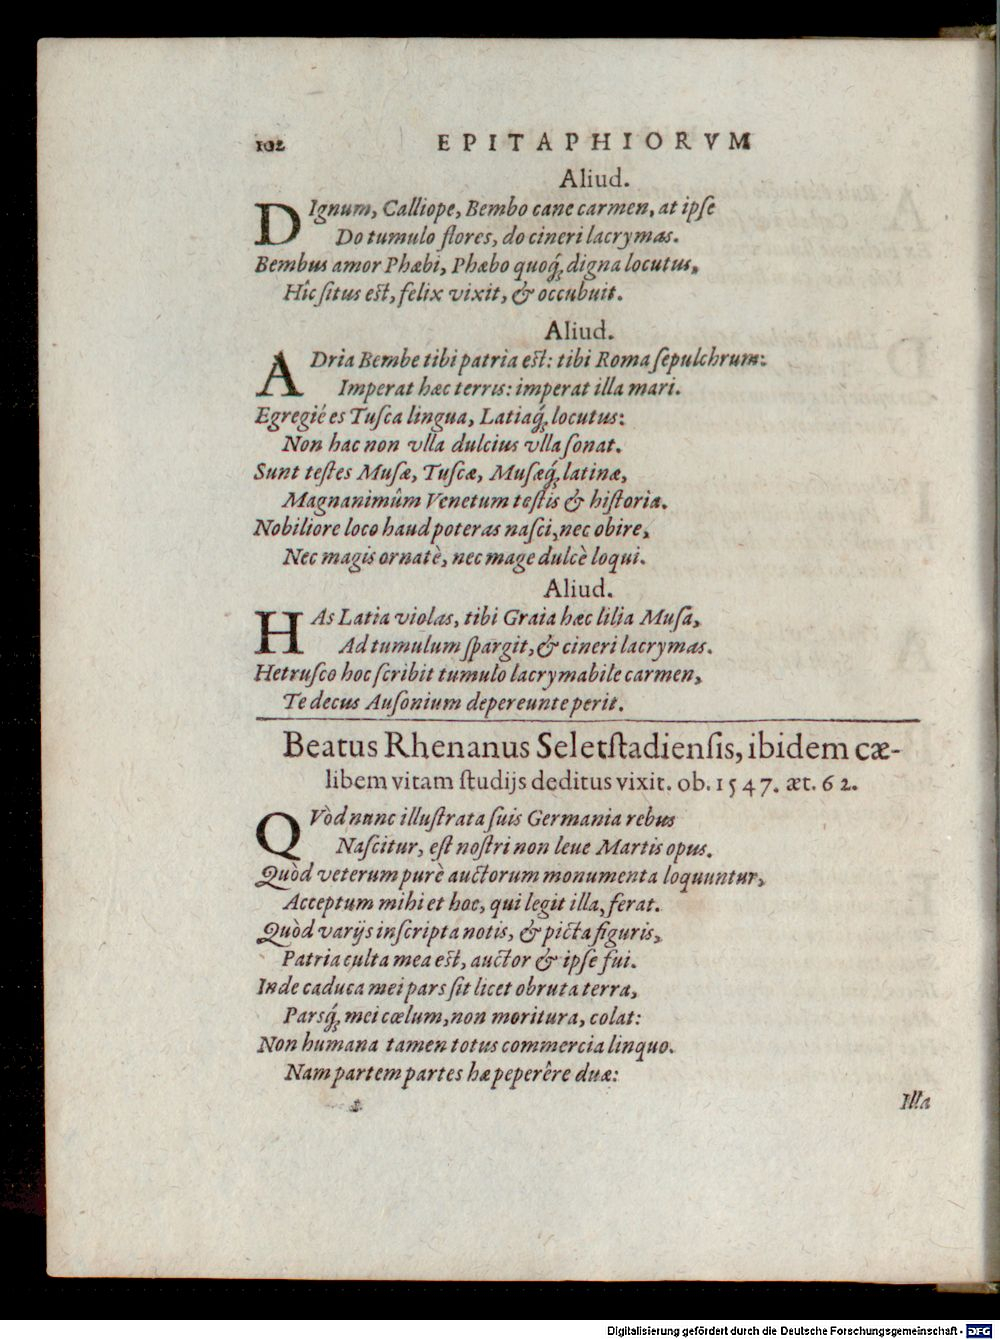 102 EPITAPHIORVM
Aliud.
DIgnum, Calliope, Bembo cane carmen, at ipſe
Do tumulo flores, do cineri lacrymas.
Bembus amor Phæbi, Phæbo quoq́; digna locutus,
Hîc ſitus est, felix vixit, & occubuit.
Aliud.
ADria Bembe tibi patria est: tibi Roma ſepulchrum:
Imperat hæc terris: imperat illa mari.
Egregié es Tuſca lingua, Latiaq́; locutus:
Non hac non vlla dulcius vlla ſonat.
Sunt teſtes Muſæ, Tuſcæ, Muſæq́; latinæ,
Magnanimûm Venetum teſtis & hiſtoria.
Nobiliore loco haud poteras naſci, nec obire,
Nec magis ornatè, nec mage dulcè loqui.
Aliud.
HAs Latia violas, tibi Graia hæc lilia Muſa,
Ad tumulum ſpargit, & cineri lacrymas.
Hetruſco hoc ſcribit tumulo lacrymabile carmen,
Te decus Auſonium depereunte perit.
Beatus Rhenanus Seletſtadienſis, ibidem cæ-
libem vitam ſtudijs deditus vixit. ob. 1547. æt. 62.
QVòd nunc illuſtrata ſuis Germania rebus
Naſcitur, eſt noſtri non leue Martis opus.
Quòd veterum purè auctorum monumenta loquuntur,
Acceptum mihi et hoc, qui legit illa, ferat.
Quòd varijs inſcripta notis, & picta figuris,
Patria culta mea est, auctor & ipſe fui.
Inde caduca mei pars ſit licet obruta terra,
Parsq́; mei cœlum, non moritura, colat:
Non humana tamen totus commercia linquo.
Nam partem partes hæ peperêre duæ:
Illa
Digitalisierung gefördert durch die Deutsche Forschungsgemeinschaft - DFG